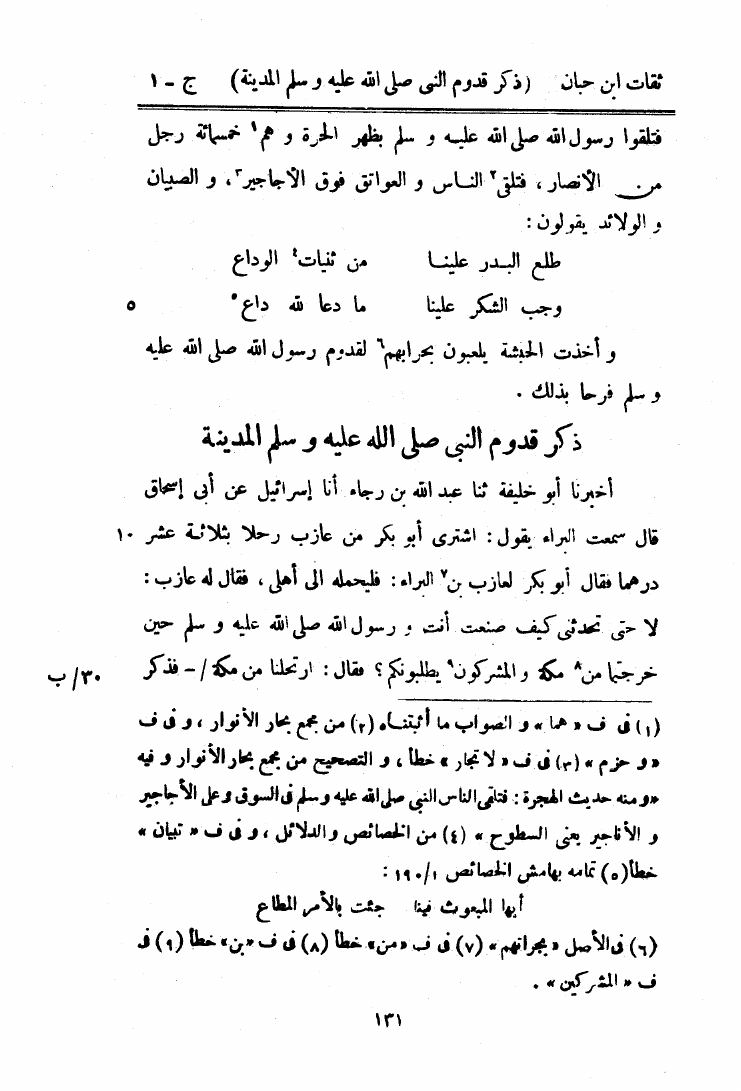 ثقات ابن حبان (ذكر قدوم النبى صلى الله عليه و سلم المدينة) ج - ١
فتلقوا رسول الله صلى الله عليه و سلم بظهر الحرة و هم١ خمسمائة رجل
من الأنصار ، فتلقى٢ الناس و العواتق فوق الأجاجير٣، و الصبيان
و الولائد يقولون :
طلع البدر علينا من ثنيات٤ الوداع
وجب الشكر علينا ما دعا لله داع٥ ٥
و أخذت الحبشة يلعبون بحرابهم٦ لقدوم رسول الله صلى الله عليه
و سلم فرحا بذلك .
ذكر قدوم النبى صلى الله عليه و سلم المدينة
أخبرنا أبو خليفة ثنا عبد الله بن رجاء أنا إسرائيل عن أبى إسحاق
قال سمعت البراء يقول : اشترى أبو بكر من عازب رحلا بثلاثة عشر ١٠
درهما فقال أبو بكر لعازب بن٧ البراء : فليحمله الى أهلى ، فقال له عازب :
لا حتى تحدثنى كيف صنعت أنت و رسول الله صلى الله عليه و سلم حين
خرجتما من٨ مكة و المشركون٩ يطلبونكم ؟ فقال : ارتحلنا من مكة / - فذكر ٣٠/ب
(١) فى ف « هما » و الصواب ما أثبتناه (٢) من مجمع بحار الأنوار ، و فى ف
« و حزم » (٣) فى ف « لا تجار » خطأ ، و التصحيح من مجمع بحار الأنوار و فيه
« و منه حديث الهجرة : فتلقى الناس النبى صلى الله عليه وسلم فى السوق و على الأجاجير
و الأناجير يعنى السطوح » (٤) من الخصائص و الدلائل ، و فى ف « تبيان »
خطأ (٥) تمامه بهامش الخصائص ١/١٩٠ :
أيها المبعوث فينا جئت بالأمر المطاع
(٦) فى الأصل « بجراتهم » (٧) فى ف « من » خطأ (٨) فى ف « بن » خطأ (٩) فى
ف « المشركين » .
١٣١